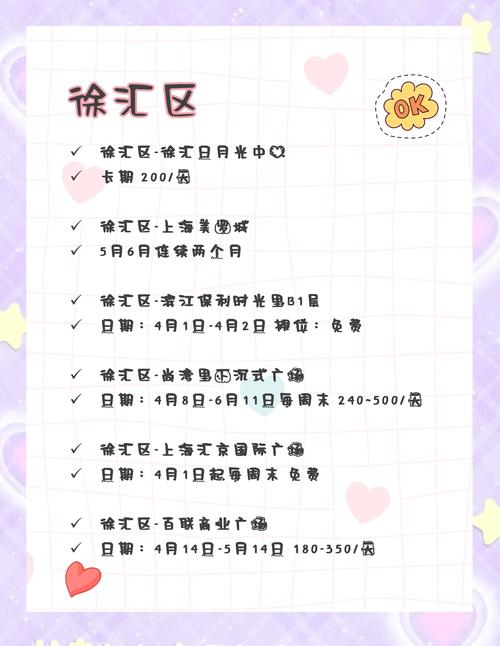 徐汇区
OK
✓ 徐汇区-徐汇日月光中心
✓ 卡期 200/天
✓ 徐汇区-上海美罗城
✓ 5月6月连续两个月
✓ 徐汇区-滨江保利时光里B1层
✓ 日期：4月1日-4月2日 摊位：免费
✓ 徐汇区-尚湾里下沉式广场
✓ 日期：4月8日-6月11日每周末 240~500/天
✓ 徐汇区-上海汇京国际广场
✓ 日期：4月1日起每周末 免费
✓ 徐汇区-百联商业广场
✓ 日期：4月14日-5月14日 180-350/天